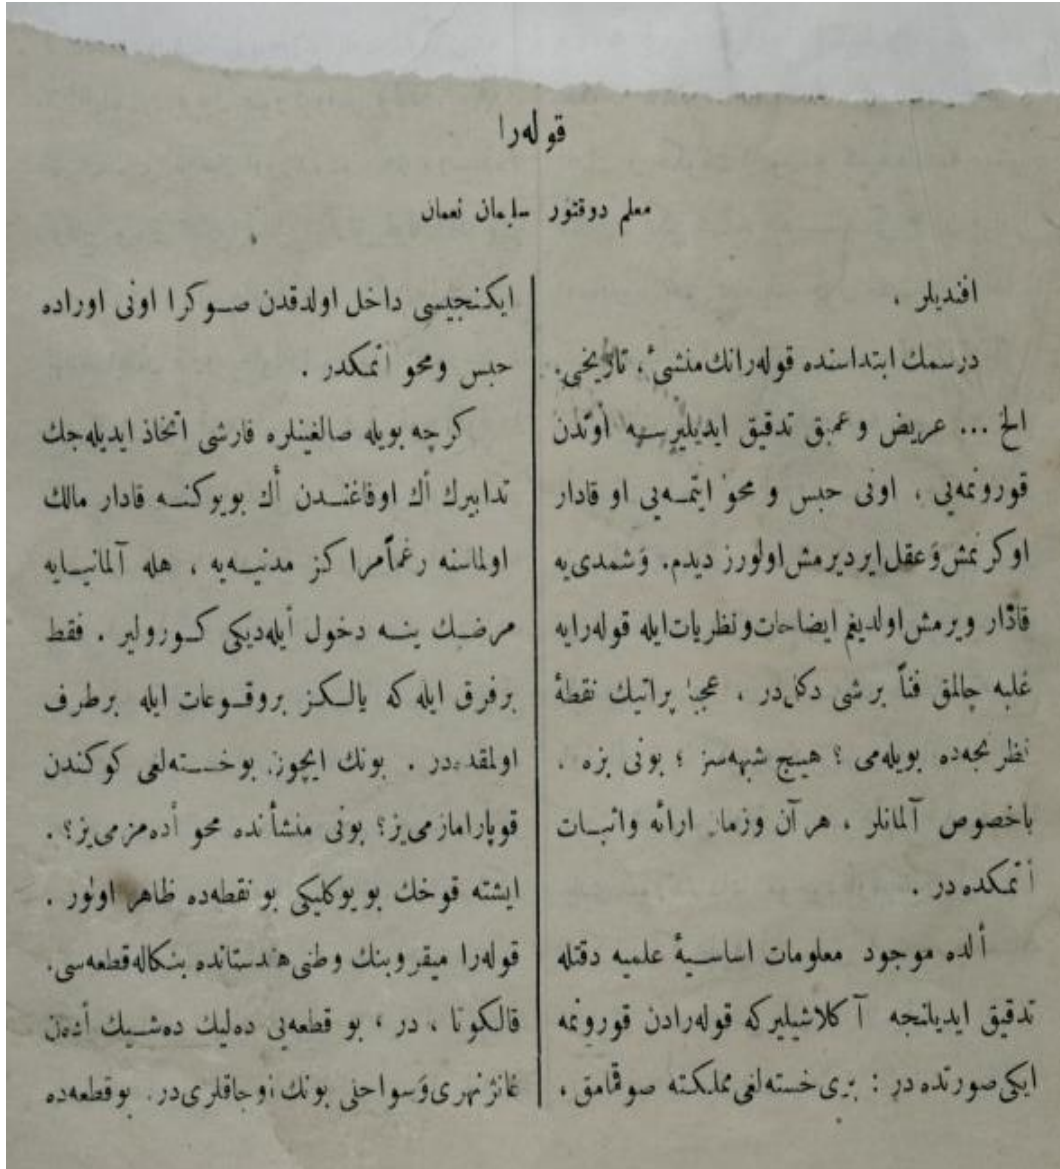 قوله‌را
معلم دوقتور سليمان نعمان
افنديلر ،
درسمك ابتداسنده قوله‌رانك منشئ ، تاريخى .
الخ ... عريض و عميق تدقيق ايديليرسه اوندن
قورونمه‌يى ، اونى حبس و محو ايتمه‌يى او قادار
اوكرنمش وَ عقل ايرديرمش اولورز ديدم. وَ شمدى يه
قادار ويرمش اولديغم ايضاحات و نظريات ايله قوله‌رايه
غلبه چالمق فناً بر شى دكل در ، عجبا پراتيك نقطهٔ
نظر نجه‌ده بويله‌مى ؟ هيچ شبهه‌سز ؛ بونى بزه ،
باخصوص آلمانلر ، هر آن وزمان ارائه واثبات
أتمكده در .
ألده موجود معلومات اساسيهٔ علميه دقتله
تدقيق ايديلنجه آكلاشيلير كه قوله‌رادن قورونمه
ايكى صورتده در : برى خسته‌لغى مملكته صوقمامق ،
ايكنجيسى داخل اولدقدن صوكرا اونى اوراده
حبس ومحو أتمكدر .
كرچه بويله صالغينلره قارشى اتخاذ ايديله‌جك
تدابيرك أك اوفاغندن أك بويوكنه قادار مالك
اولماسنه رغماً مراكز مدنيه‌يه ، هله آلمانيايه
مرضك ينه دخول أيله‌ديكى كورولير . فقط
برفرق ايله كه يالكز بروقوعات ايله برطرف
اولمقده‌در . بونك ايچون بوخسته‌لغى كوكندن
قوپارامازمى‌يز؟ بونى منشأنده محو أده‌مزمى‌يز؟ .
ايشته قوخك بويوكلكى بو نقطه‌ده ظاهر اولور .
قوله‌را ميقروبنك وطنى هندستانده بنكاله قطعه‌سى.
قالكوتا ، در ، بو قطعه‌يى ده‌ليك ده‌شيك أده‌ن
غانژ نهرى وَ سواحلى بونك اوجاقلرى‌در. بو قطعه‌ده